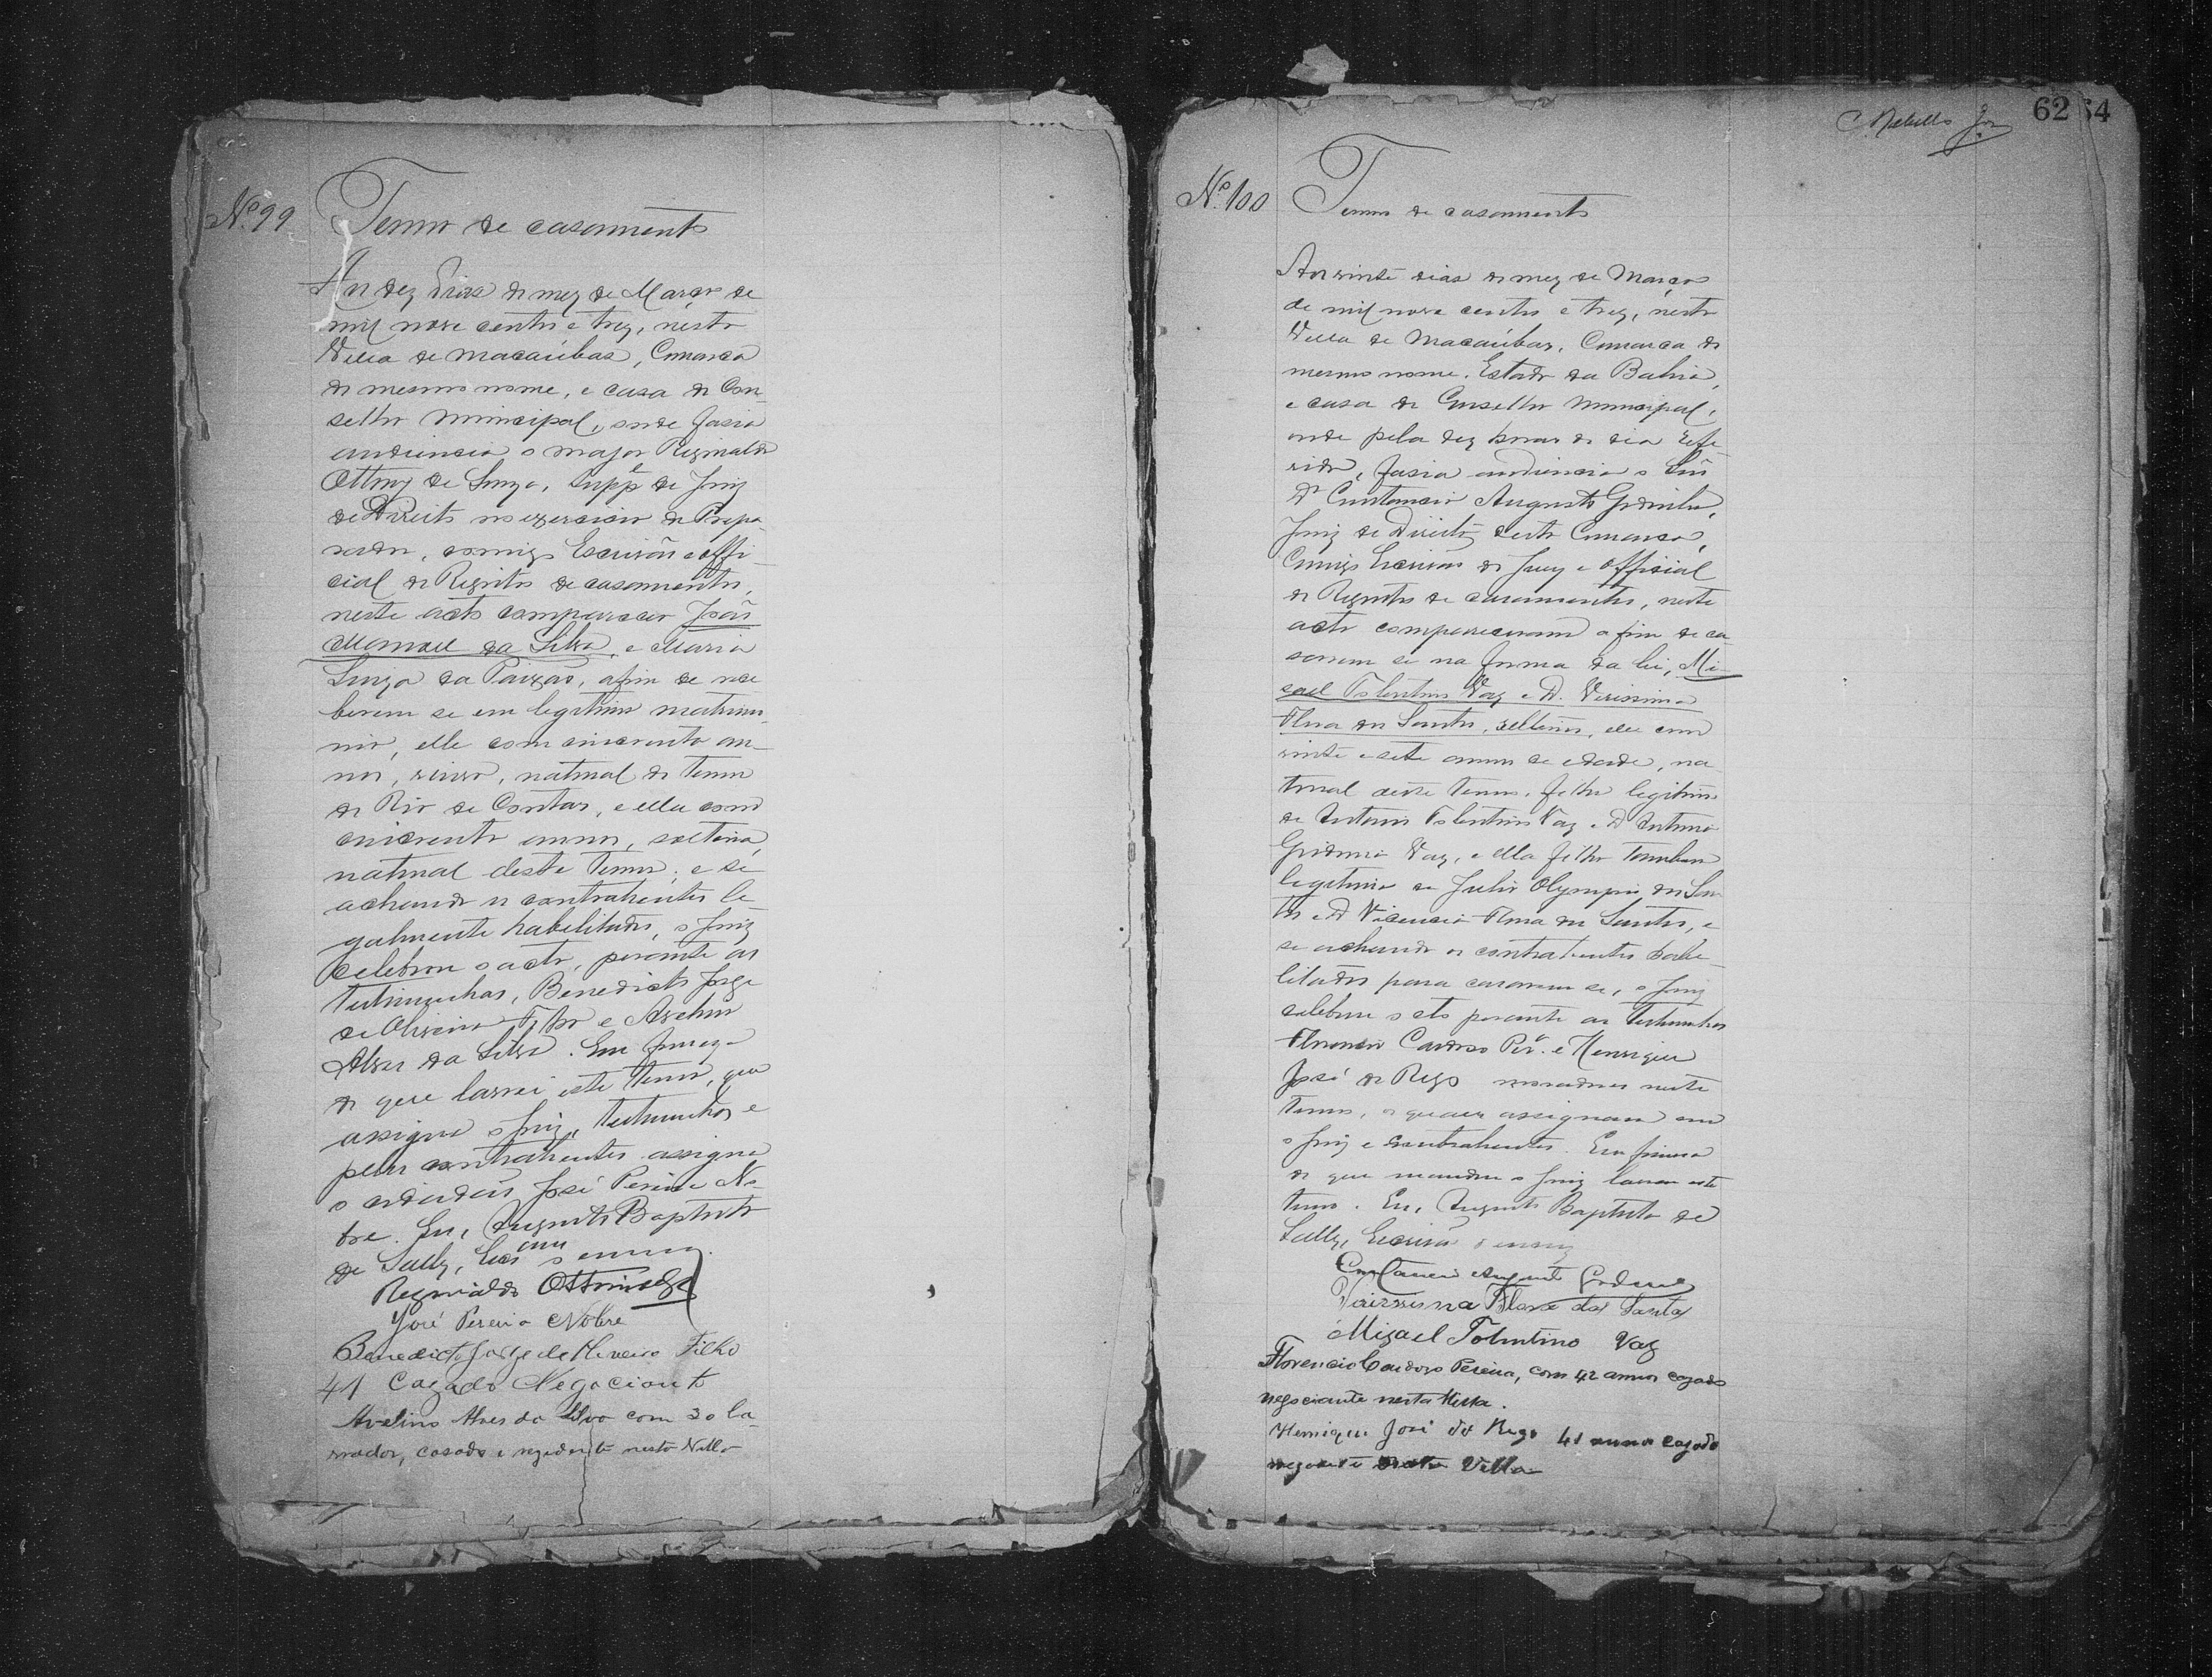 Nº 99
Termo de casamento
Aos dez dias do mez de Março de
mil nove centos e trez, nesta
Villa de Macaúbas, Comarca
do mesmo nome, e casa do Con-
selho Municipal, onde fasia
audiencia o major Reginaldo
de Souza, Suppe de Juiz
de Direito no exercicio de Prepa-
rador, comigo Escrivão e offi-
cial do Registro de casamentos,
neste acto compareceo João
Manoel da Silva, e Maria
Souza da Paixão, afim de rece
berem se em legitimo matrimo-
nio, elle com cincoenta an-
nos, viuvo, natural do termo
do Rio de Contas, e ella com
cincoenta annos, solteira,
natural deste Termo; e se
achando os contrahentes le-
galmente habilitados, o Juiz
celebrou o acto, perante as
testimunhas, Benedicto Jorge
de Oliveira Filho e Avelino
Alves da Silva. Em firmeza
do que lavrei este termo, que
assigna o Juiz, testimunhas e
pelos contrahentes assigna
o cidadão José Pereira No-
bre. Eu, Augusto Baptista
de Sally, Escivam o escrevi.
Reginaldo
José Pereira Nobre
Benedicto Jorge de Oliveira Filho
41 Cazado Negociante
Avelino Alves da Silva com 30 la-
vrador, casado e rezidente nesta Villa
C. Rebello
62
54
Nº 100
Termo de casamento
Aos vinte dias do mez de Março
de mil nove centos e trez, nesta
Villa de Macaúbas, Comarca do
mesmo nome, Estado da Bahia,
e casa do Conselho Municipal,
onde pela dez horas do dia refe
rido, fasia audiencia o
Dr Constancio Augusto
Juiz de Direito desta Comarca,
Comigo Escrivão do Jury e official
do Registro de casamentos, neste
acto compareceram a fim de ca
sarem se na forma da lei, Mi-
sael Tolentino Vaz e D. Verissima
Flora dos Santos, solteiros, elle com
vinte e sete annos de edade, na
tural deste termo, filho legitimo
de Antonio Tolentino Vaz e D Antonia
Vaz, e ella filha tambem
legitima de Julio Olympio dos San
tos e D Vicencia Flora dos Santos, e
se achando os contrahentes habi-
litados para casarem se, o Juiz
celebrou o acto perante as testimunhas
Florencio Cardoso Perª. e Henrique
José do Rego moradores neste
termo, os quaes assignam com
o Juiz e contrahentes. Em firmeza
do que mandou o Juiz lavrar este
termo. Eu, Augusto Baptista de
Sally, Escrivão o escrevy
Constancio Augusto
Verissima Flora dos Santos
Mizael Tolentino Vaz
Florencio Cardozo Pereira, com 42 annos cazado
negociante nesta Villa.
Henrique José do Rego 41 annos cazado
negociante nesta Villa